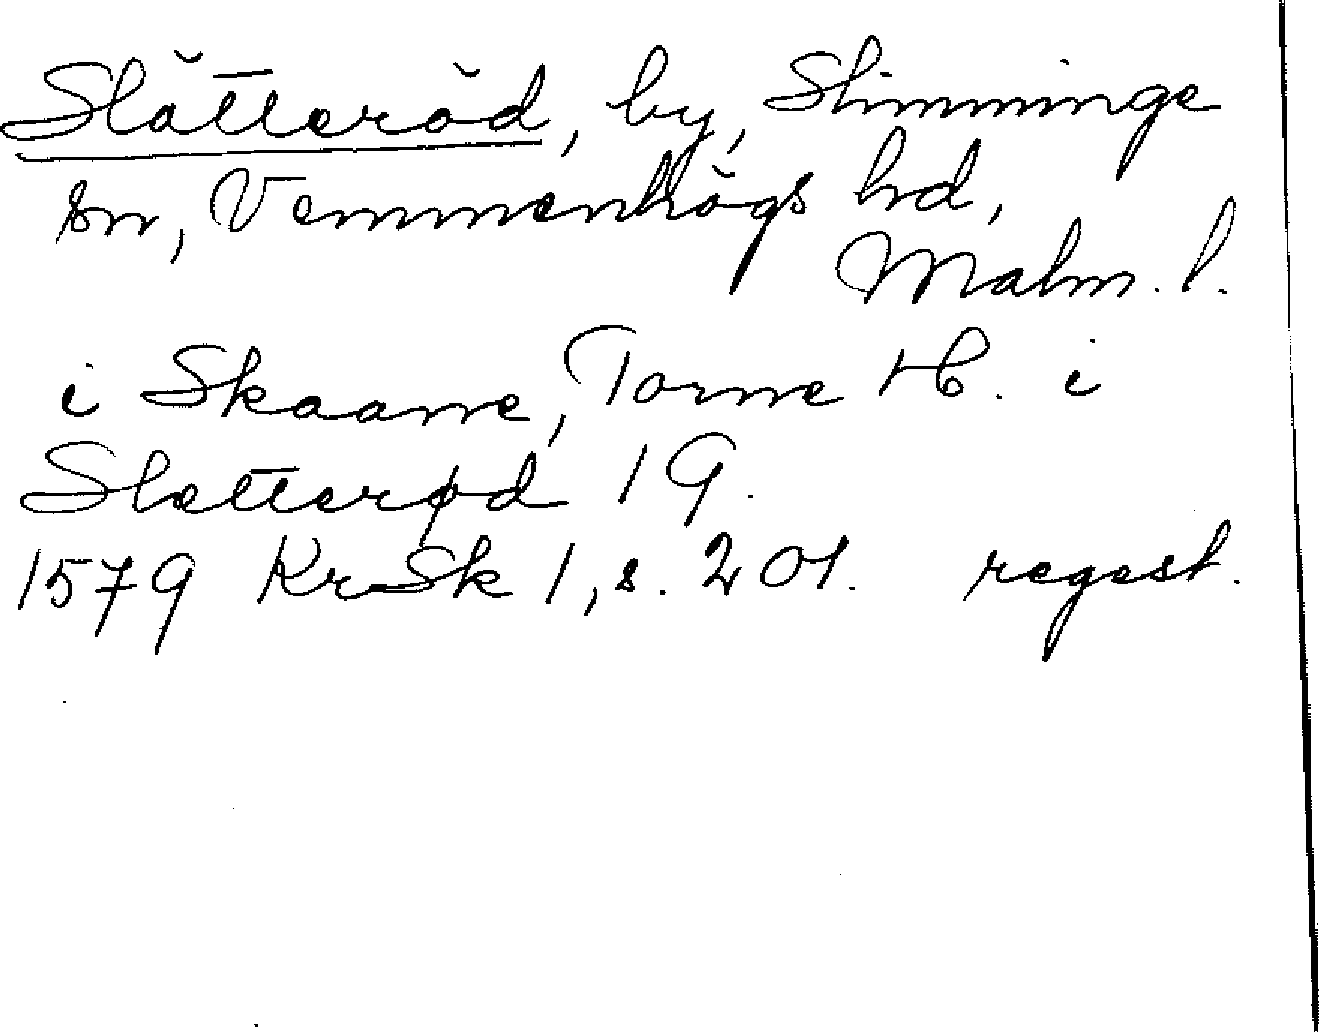 Slätteröd, by, Slimminge
sn, Vemmenhögs hd,
Malm. l.
i Skaane, Torne H. i
Sletterød 1 G.
1579 KrSk 1, s. 201. regest.